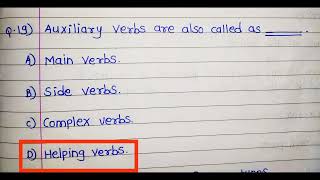 Q.19) Auxiliary verbs are also called as ______.
A) Main verbs.
B) Side verbs.
C) Complex verbs.
D) Helping verbs.